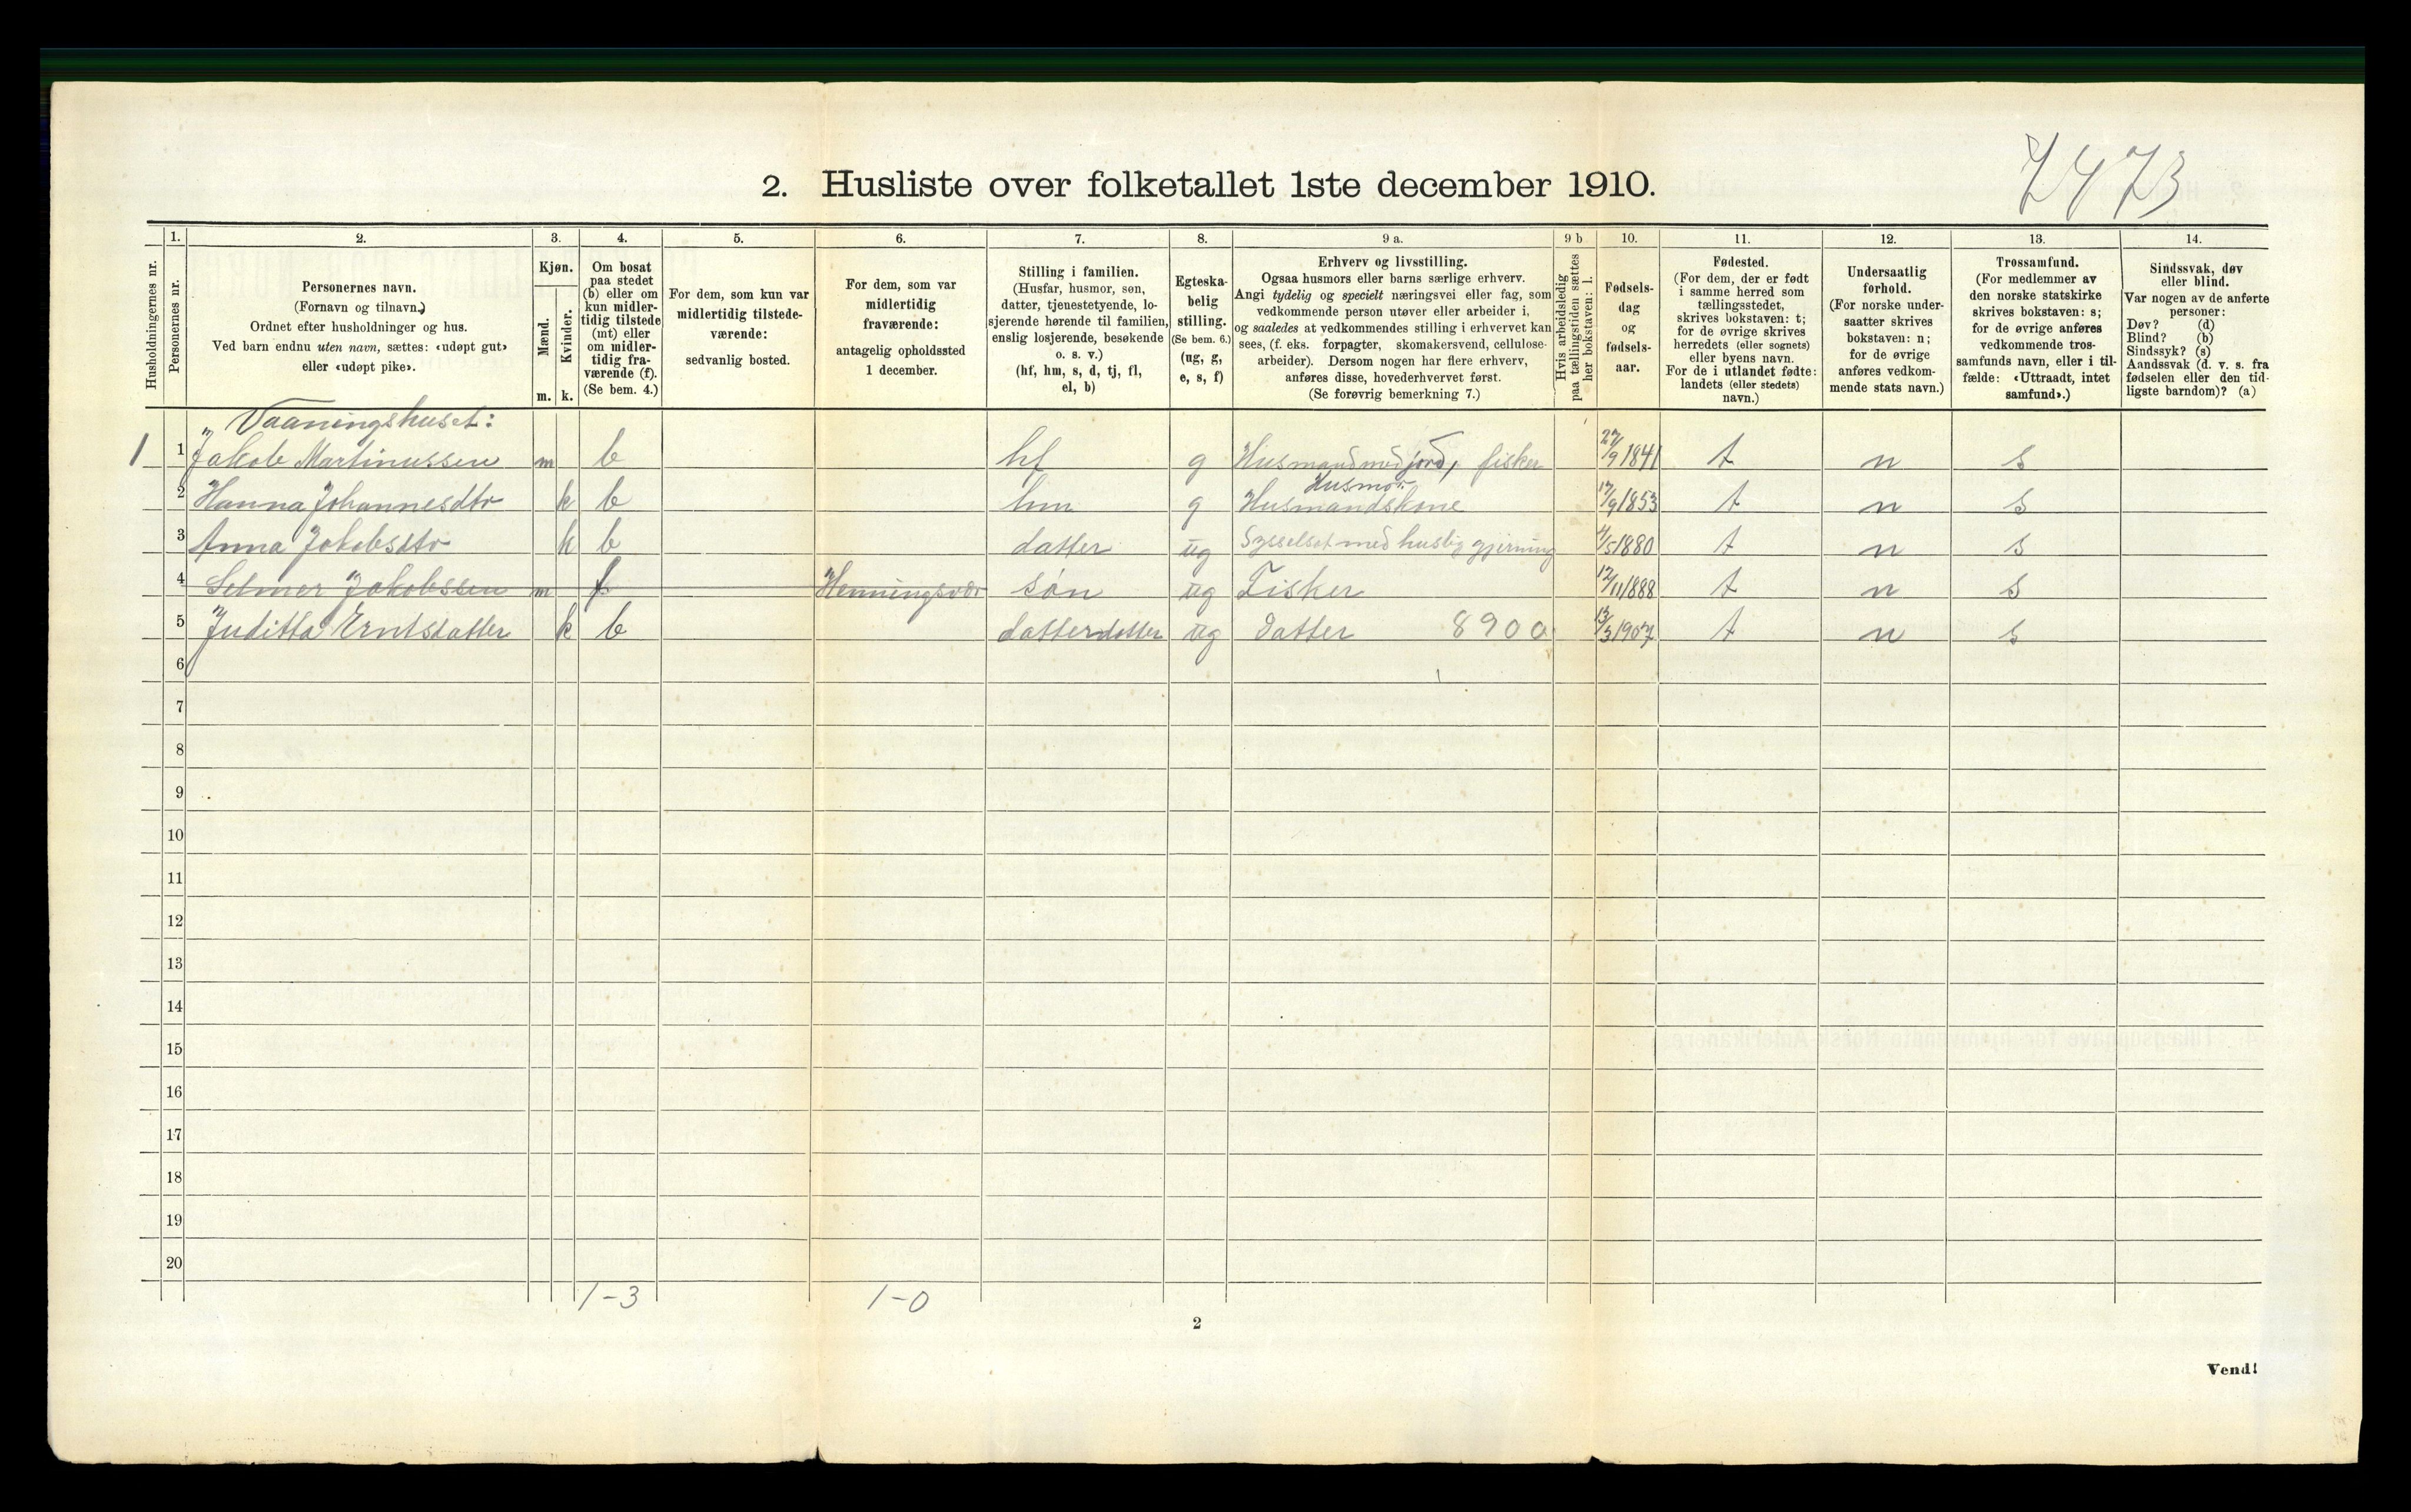 7473
2. Husliste over folketallet 1ste december 1910.
Husholdningernes nr.
1.
Personernes nr.
2.
Personernes navn.
(Fornavn og tilnavn.)
Ordnet efter husholdninger og hus.
Ved barn endnu uten navn, sættes: «udøpt gut»
eller «udøpt pike».
3.
Kjøn.
Mænd.
Kvinder.
m. k.
4.
Om bosat
paa stedet
(b) eller om
kun midler-
tidig tilstede
(mt) eller
om midler-
tidig fra-
værende (f).
(Se bem. 4.)
5.
For dem, som kun var
midlertidig tilstede-
værende:
sedvanlig bosted.
6.
For dem, som var
midlertidig
fraværende:
antagelig opholdssted
1 december.
7.
Stilling i familien.
(Husfar, husmor, søn,
datter, tjenestetyende, lo-
sjerende hørende til familien,
enslig losjerende, besøkende
o. s. v.)
(hf, hm, s, d, tj, fl,
el, b)
8.
Egteska-
belig
stilling.
(Se bem. 6.)
(ug, g,
e, s, f)
9 a.
Erhverv og livsstilling.
Ogsaa husmors eller barns særlige erhverv.
Angi tydelig og specielt næringsvei eller fag, som
vedkommende person utøver eller arbeider i,
og saaledes at vedkommendes stilling i erhvervet kan
sees, (f. eks. forpagter, skomakersvend, cellulose-
arbeider). Dersom nogen har flere erhverv,
anføres disse, hovederhvervet først.
(Se forøvrig bemerkning 7.)
9 b
Hvis arbeidsledig
paa tællingstiden sættes
her bokstaven: l.
10.
Fødsels-
dag
og
fødsels-
aar.
11.
Fødested.
(For dem, der er født
i samme herred som
tællingsstedet,
skrives bokstaven: t;
for de øvrige skrives
herredets (eller sognets)
eller byens navn.
For de i utlandet fødte:
landets (eller stedets)
navn.)
12.
Undersaatlig
forhold.
(For norske under-
saatter skrives
bokstaven: n;
for de øvrige
anføres vedkom-
mende stats navn.)
13.
Trossamfund.
(For medlemmer av
den norske statskirke
skrives bokstaven: s;
for de øvrige anføres
vedkommende tros-
samfunds navn, eller i til-
fælde: «Uttraadt, intet
samfund».)
14.
Sindssvak, døv
eller blind.
Var nogen av de anførte
personer:
Døv? (d)
Blind? (b)
Sindssyk? (s)
Aandssvak (d. v. s. fra
fødselen eller den tid-
ligste barndom)? (a)
Vaaningshuset:
1 1 Jakob Martinussen m b hf g Husmand med jord, fisker 27/9 1841 t n s
Husmor
2 Hanna Johannesdtr k b hm g Husmandskone 17/9 1853 t n s
3 Anna Jakobsdtr k b datter ug Sysselsat med huslig gjerning 4/5 1880 t n s
4 Selmer Jakobssen m f Henningsvær søn ug Fisker 12/11 1888 t n s
5 Juditta Erntsdatter k b datterdatter ug datter 8900 13/3 1907 t n s
6
7
8
9
10
11
12
13
14
15
16
17
18
19
20
1-3 1-0
2
Vend!